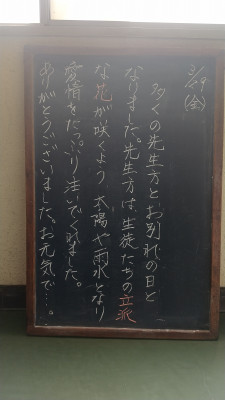 3/29(金)
多くの先生方とお別れの日と
なりました。先生方は、生徒たちの立派
な花が咲くよう 太陽や雨水となり
愛情をたっぷり注いでくれました。
ありがとうございました。お元気で…。